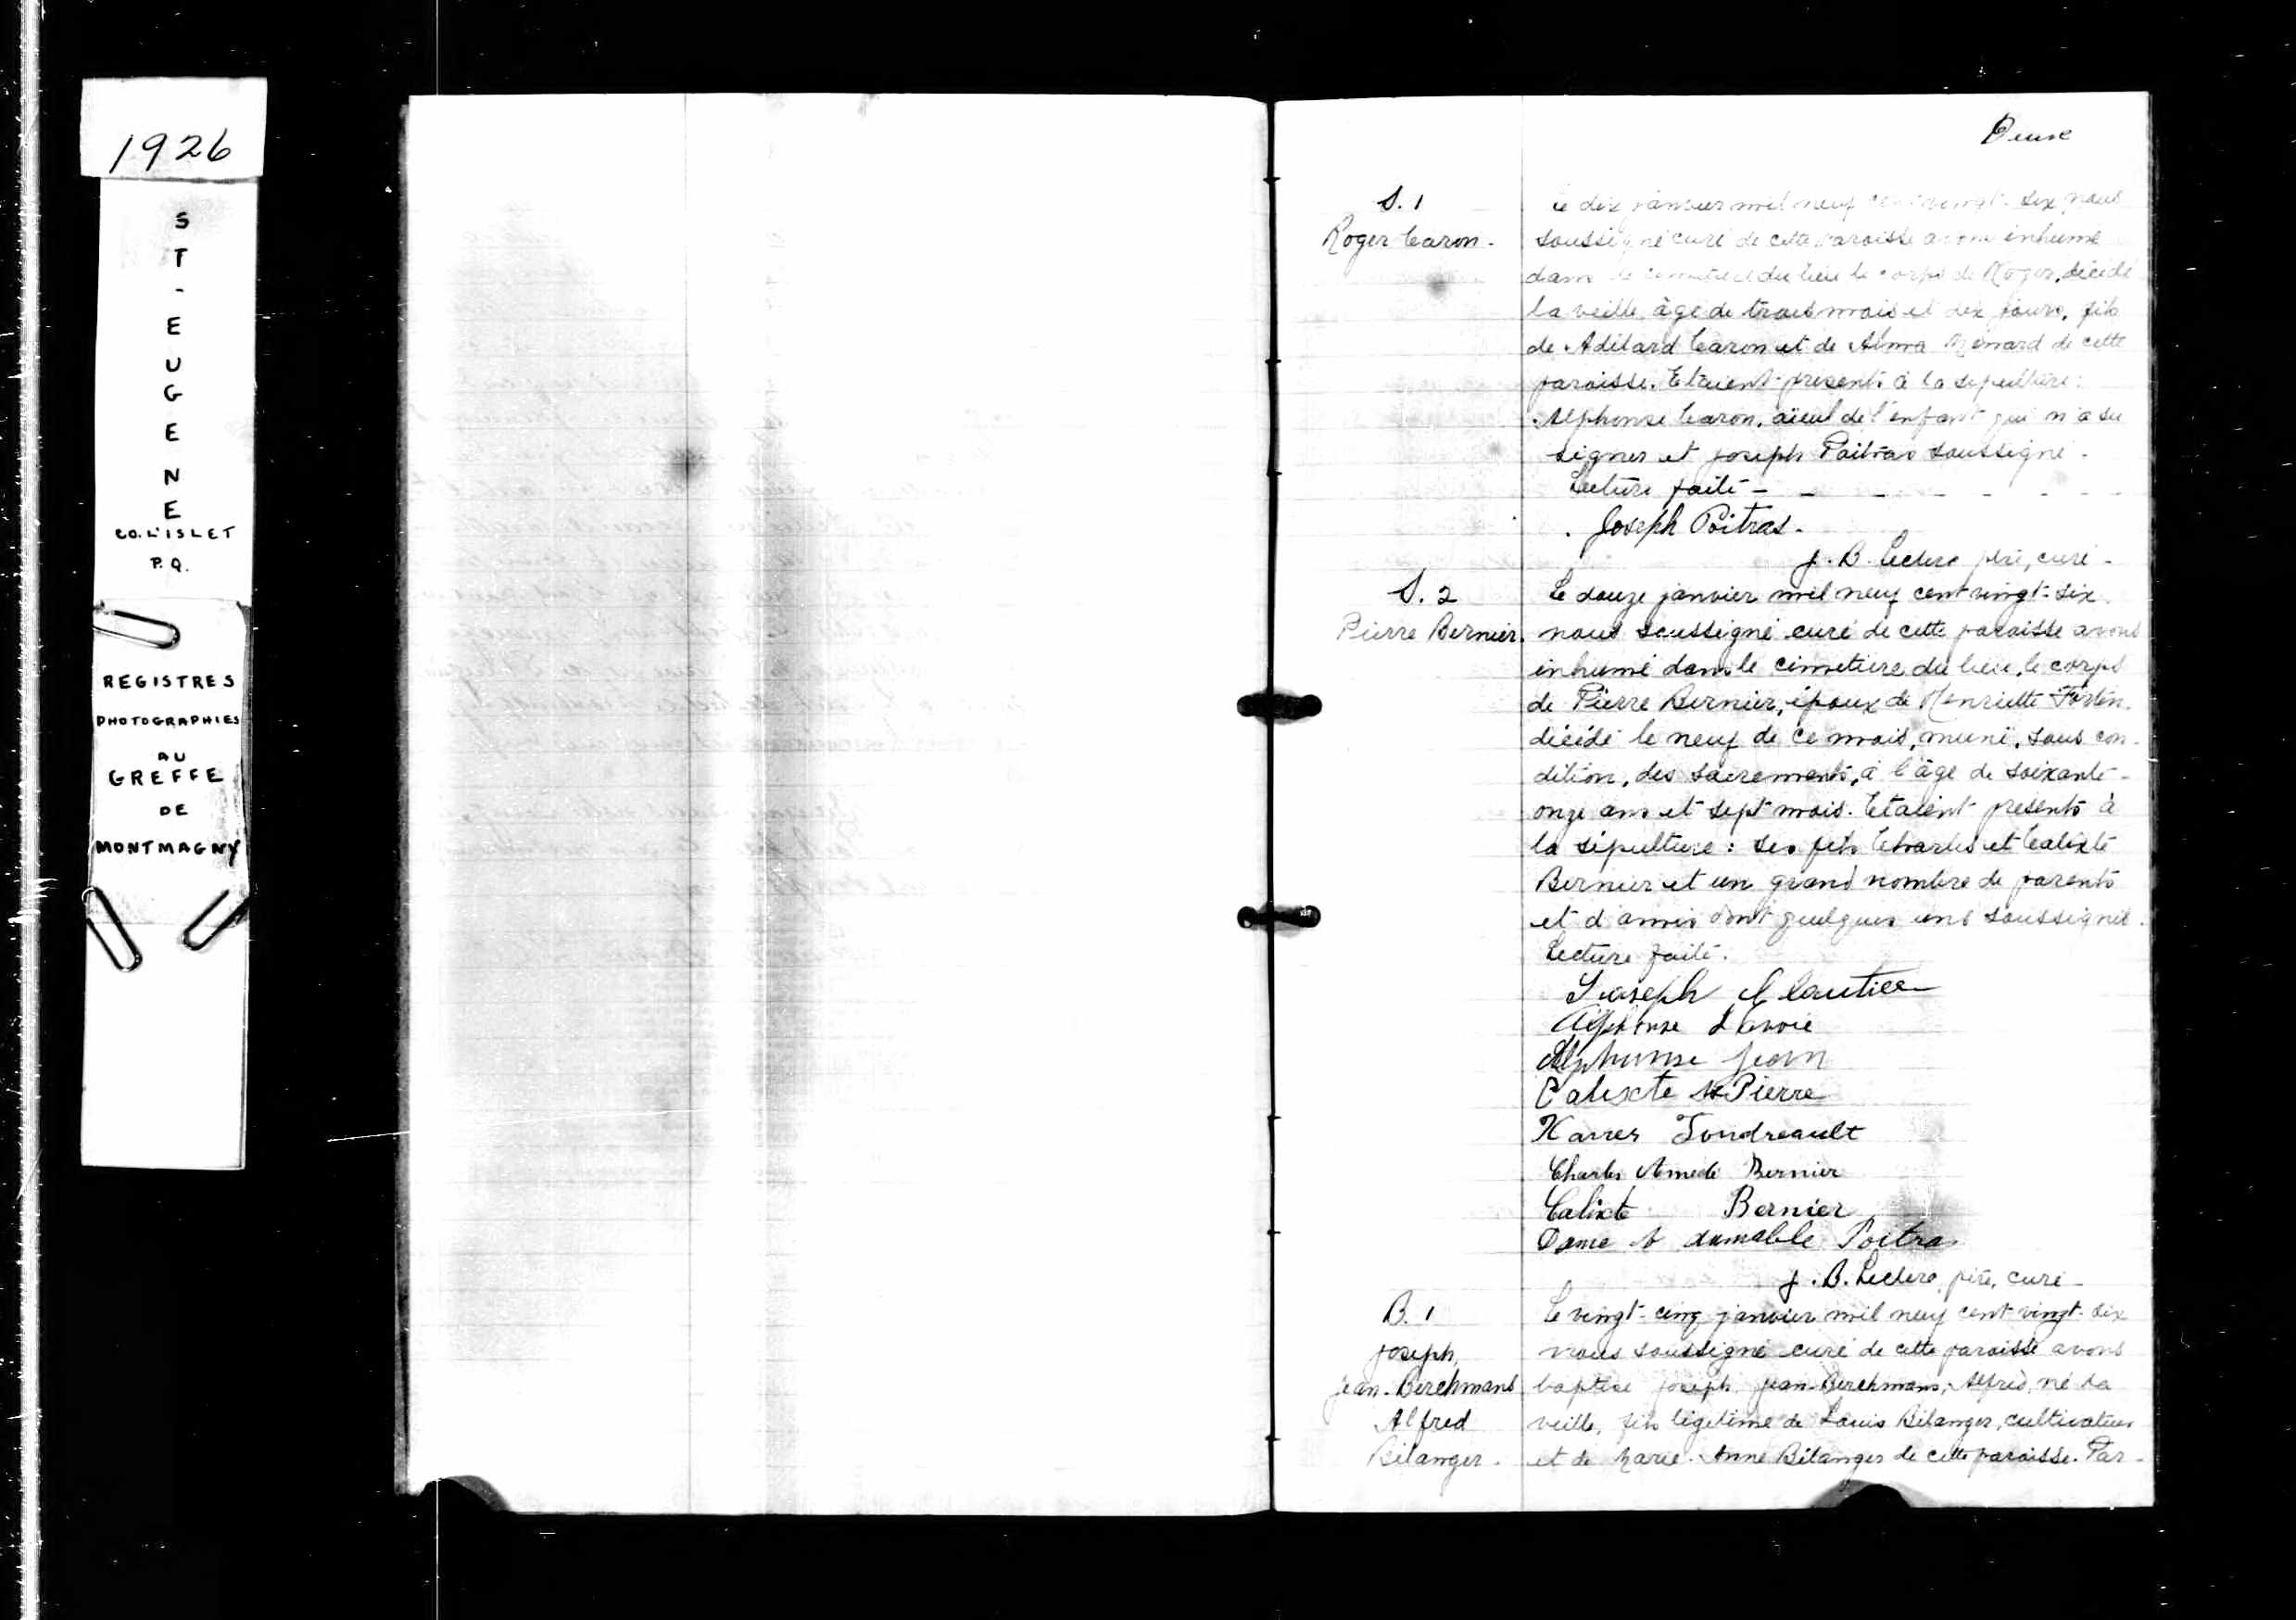 1926
ST-EUGENE
CO. L'ISLET
P.Q.
REGISTRES
PHOTOGRAPHIES
AU
GREFFE
DE
MONTMAGNY
Deux
S. 1
Roger Caron.
Le dix janvier mil neuf cent vingt-six nous
soussigné curé de cette paroisse avons inhumé
dans le cimetière du lieu le corps de Roger, décédé
la veille âgé de trois mois et dix jours, fils
de Adélard Caron et de Alma Ménard de cette
paroisse. Etaient présents à la sépulture:
Alphonse Caron, aïeul de l'enfant qui n'a su
signer et Joseph Poitras soussigné.
Lecture faite - - - - - - - -
Joseph Poitras.
J. B. Leclerc ptre, curé -
S. 2
Pierre Bernier.
Le douze janvier mil neuf cent vingt-six
nous soussigné curé de cette paroisse avons
inhumé dans le cimetière du lieu, le corps
de Pierre Bernier, époux de Henriette Fortin.
décédé le neuf de ce mois, muni, sous con-
dition, des sacrements, à l'âge de soixante-
onze ans et sept mois. Etaient présents à
la sépulture: ses fils Charles et Calixte
Bernier et un grand nombre de parents
et d'amis dont quelques uns soussignés.
Lecture faite.
Joseph Cloutier
Alphonse Lavoie
Alphonse Jean
Calixte St Pierre
Xavier Tondreault
Charles Amedé Bernier
Calixte Bernier
Dame Poitras
J. B. Leclerc, ptre, curé -
B. 1
Joseph,
Jean-Berchmans
Alfred
Bélanger.
Le vingt-cinq janvier mil neuf cent vingt-six
nous soussigné curé de cette paroisse avons
baptisé Joseph, Jean-Berchmans, Alfred, né la
veille, fils légitime de Louis Bélanger, cultivateur
et de Marie-Anne Bélanger de cette paroisse. Par-